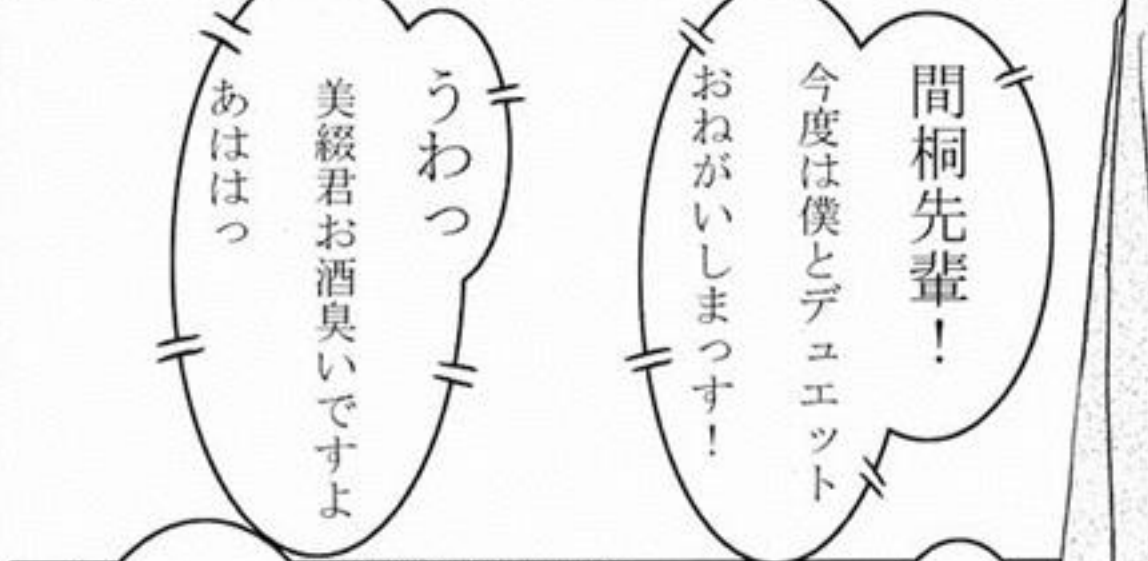 間桐先輩！
今度は僕とデュエット
おねがいしまっす！
うわっ
美綴君お酒臭いですよ
あははっ